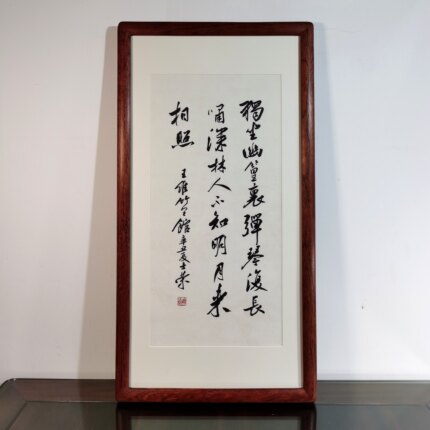 獨坐幽篁裏彈琴復長
嘯深林人不知明月来
相照
王維竹里館辛丑夏士荣